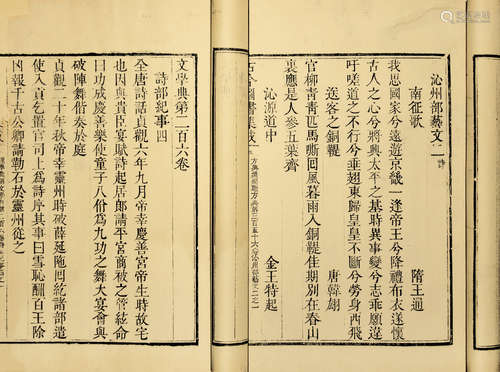 沁州部藝文二 詩
南征歌 隋王通
我思國家兮遠遊京畿一逢帝王兮降禮布衣遂懷
古人之心兮將興太平之基時異事變兮志乖願違
吁嗟道之不行兮垂翅東歸皇皇不斷兮勞身西飛
送客之銅鞮 唐韓翃
官柳青青匹馬嘶回風暮雨入銅鞮佳期別在春山
裏應是人參五葉齊
沁源道中 金王特起
古今圖書集成
文學典第二百六卷
詩部紀事四
全唐詩話貞觀六年九月帝幸慶善宮帝生時故宅
也因與貴臣宴賦詩起居郎請平宮商被之管絃命
曰功成慶善樂使童子八佾為九功之舞大宴會與
破陣舞偕奏於庭
貞觀二十年秋帝幸靈州時破薛延陁回紇諸部遣
使入貢乞置官司上為詩序其事曰雪恥酬百王除
凶報千古公卿請勒石於靈州從之